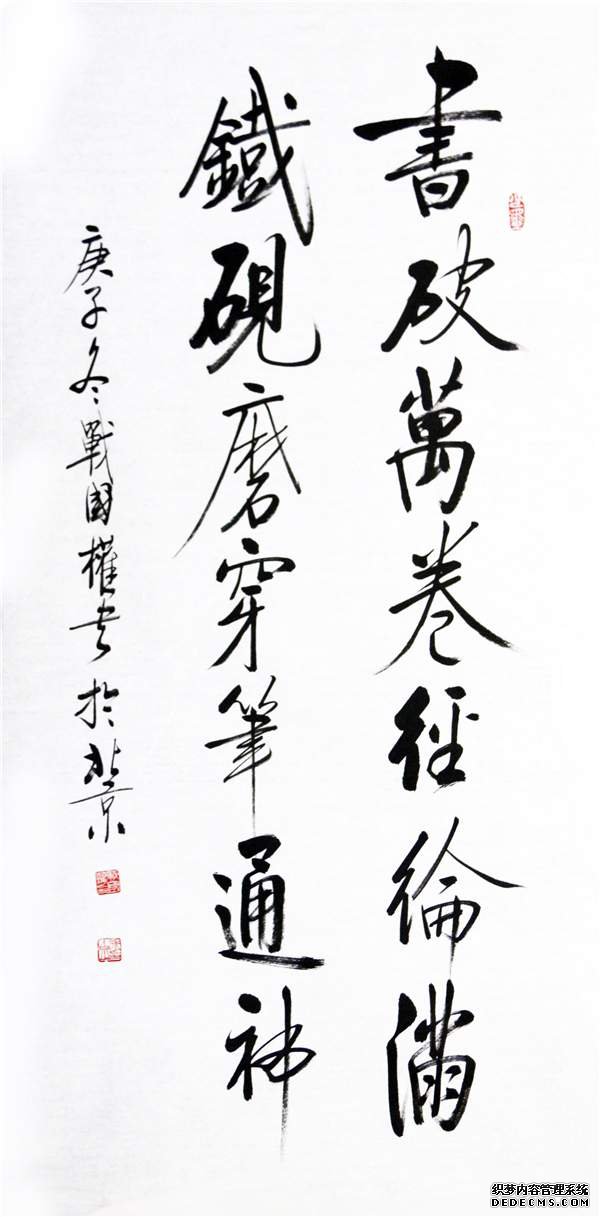 書破萬卷經綸滿
鐵硯磨穿筆通神
庚子冬戰國權書於北京
织梦内容管理系统
DEDECMS.COM